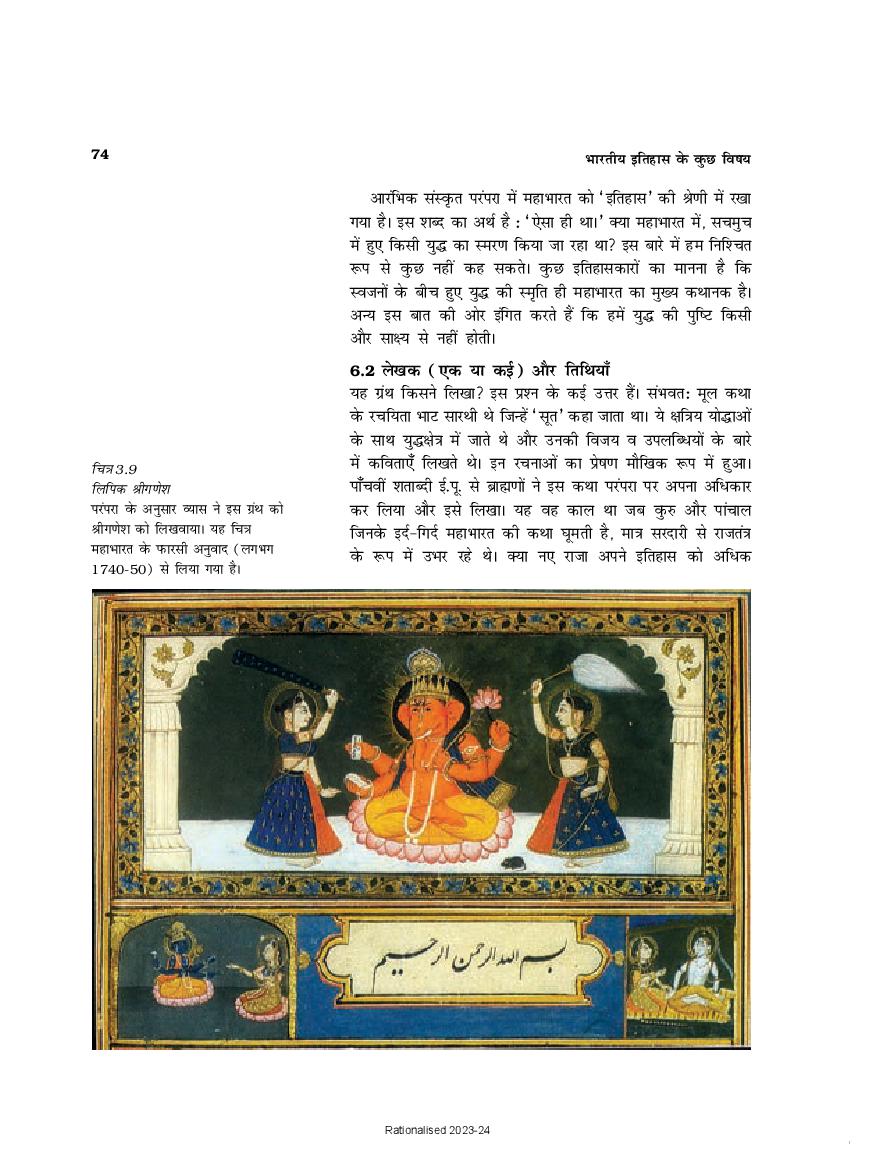 74
भारतीय इतिहास के कुछ विषय
आरंभिक संस्कृत परंपरा में महाभारत को ‘इतिहास’ की श्रेणी में रखा
गया है। इस शब्द का अर्थ है : ‘ऐसा ही था।’ क्या महाभारत में, सचमुच
में हुए किसी युद्ध का स्मरण किया जा रहा था? इस बारे में हम निश्चित
रूप से कुछ नहीं कह सकते। कुछ इतिहासकारों का मानना है कि
स्वजनों के बीच हुए युद्ध की स्मृति ही महाभारत का मुख्य कथानक है।
अन्य इस बात की ओर इंगित करते हैं कि हमें युद्ध की पुष्टि किसी
और साक्ष्य से नहीं होती।
6.2 लेखक (एक या कई) और तिथियाँ
यह ग्रंथ किसने लिखा? इस प्रश्न के कई उत्तर हैं। संभवत: मूल कथा
के रचयिता भाट सारथी थे जिन्हें ‘सूत’ कहा जाता था। ये क्षत्रिय योद्धाओं
के साथ युद्धक्षेत्र में जाते थे और उनकी विजय व उपलब्धियों के बारे
में कविताएँ लिखते थे। इन रचनाओं का प्रेषण मौखिक रूप में हुआ।
पाँचवीं शताब्दी ई.पू. से ब्राह्मणों ने इस कथा परंपरा पर अपना अधिकार
कर लिया और इसे लिखा। यह वह काल था जब कुरु और पांचाल
जिनके इर्द-गिर्द महाभारत की कथा घूमती है, मात्र सरदारी से राजतंत्र
के रूप में उभर रहे थे। क्या नए राजा अपने इतिहास को अधिक
चित्र 3.9
लिपिक श्रीगणेश
परंपरा के अनुसार व्यास ने इस ग्रंथ को
श्रीगणेश को लिखवाया। यह चित्र
महाभारत के फारसी अनुवाद (लगभग
1740-50) से लिया गया है।
بسم الله الرحمن الرحيم
Rationalised 2023-24